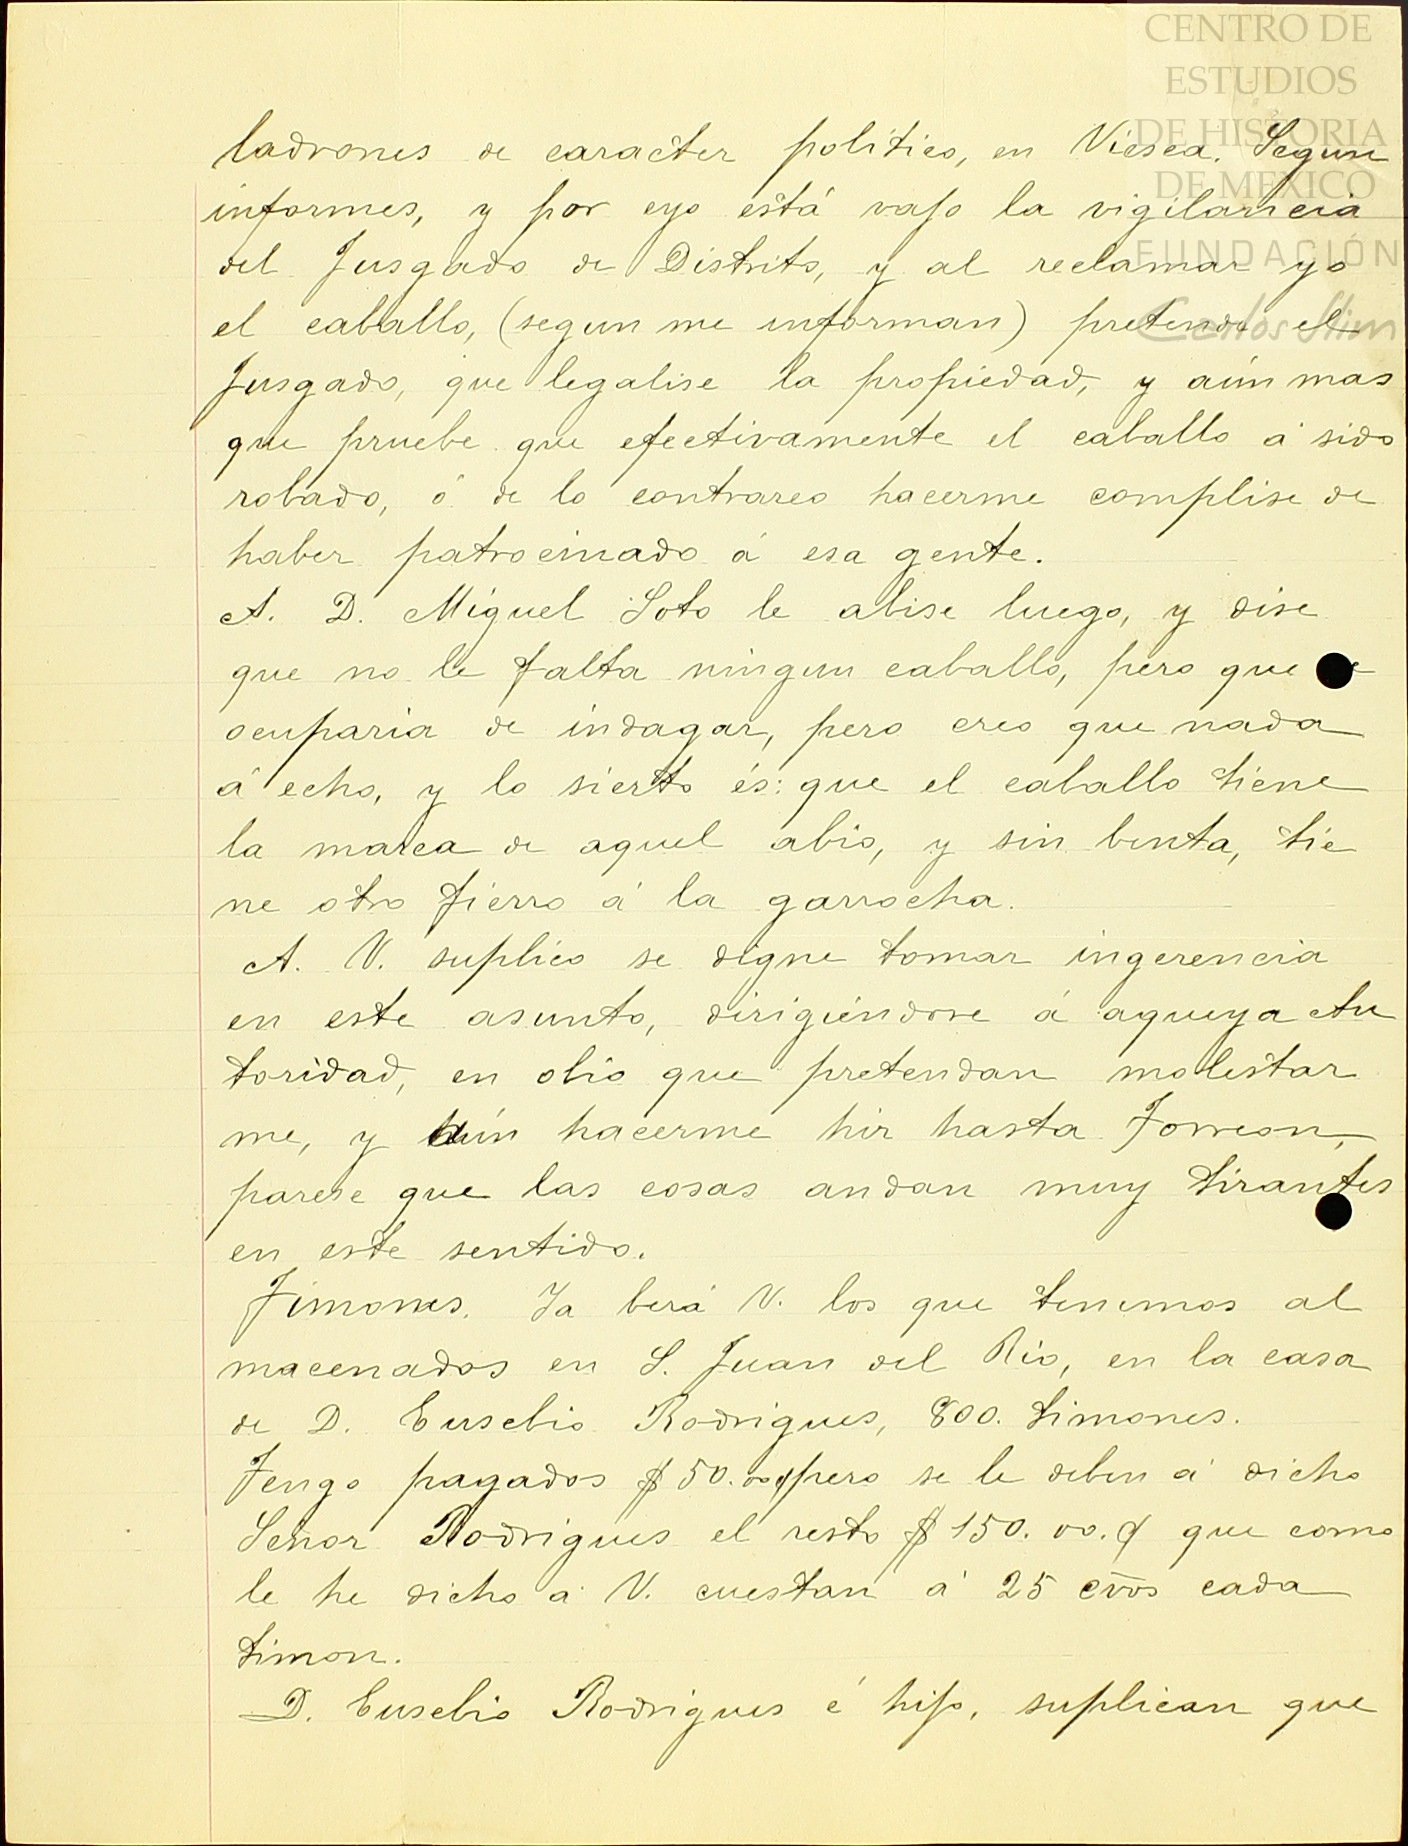 CENTRO DE
ESTUDIOS
DE HISTORIA
DE MEXICO
FUNDACIÓN
Carlos Slim
ladrones de caracter político, en Viesca. Segun
informes, y por eyo está vajo la vigilancia
del Jusgado de Distrito, y al reclamar yo
el caballo, (segun me informan) pretende el
Jusgado, que legalise la propiedad, y aún mas
que pruebe que efectivamente el caballo á sido
robado, ó de lo contrareo hacerme complise de
haber patrocinado á esa gente.
A. D. Miguel Soto le abise luego, y dise
que no le falta ningun caballo, pero que
ocuparia de indagar, pero creo que nada
á echo, y lo sierto és: que el caballo tiene
la marca de aquel abio, y sin benta, tie
ne otro fierro á la garrocha.
A. V. suplico se digne tomar ingerencia
en este asunto, dirigiéndose á aqueya Au
toridad, en obio que pretendan molestar
me, y aún hacerme hir hasta Torreon,
parese que las cosas andan muy tirantes
en este sentido.
Timones. Ya berá V. los que tenemos al
macenados en S. Juan del Rio, en la casa
de D. Eusebio Rodrigues, 800. timones.
Tengo pagados $50.00¢ pero se le deben á dicho
Señor Rodrigues el resto $150.00.¢ que como
le he dicho á V. cuestan á 25 cvos cada
timon.
D. Eusebio Rodrigues é hijo, suplican que